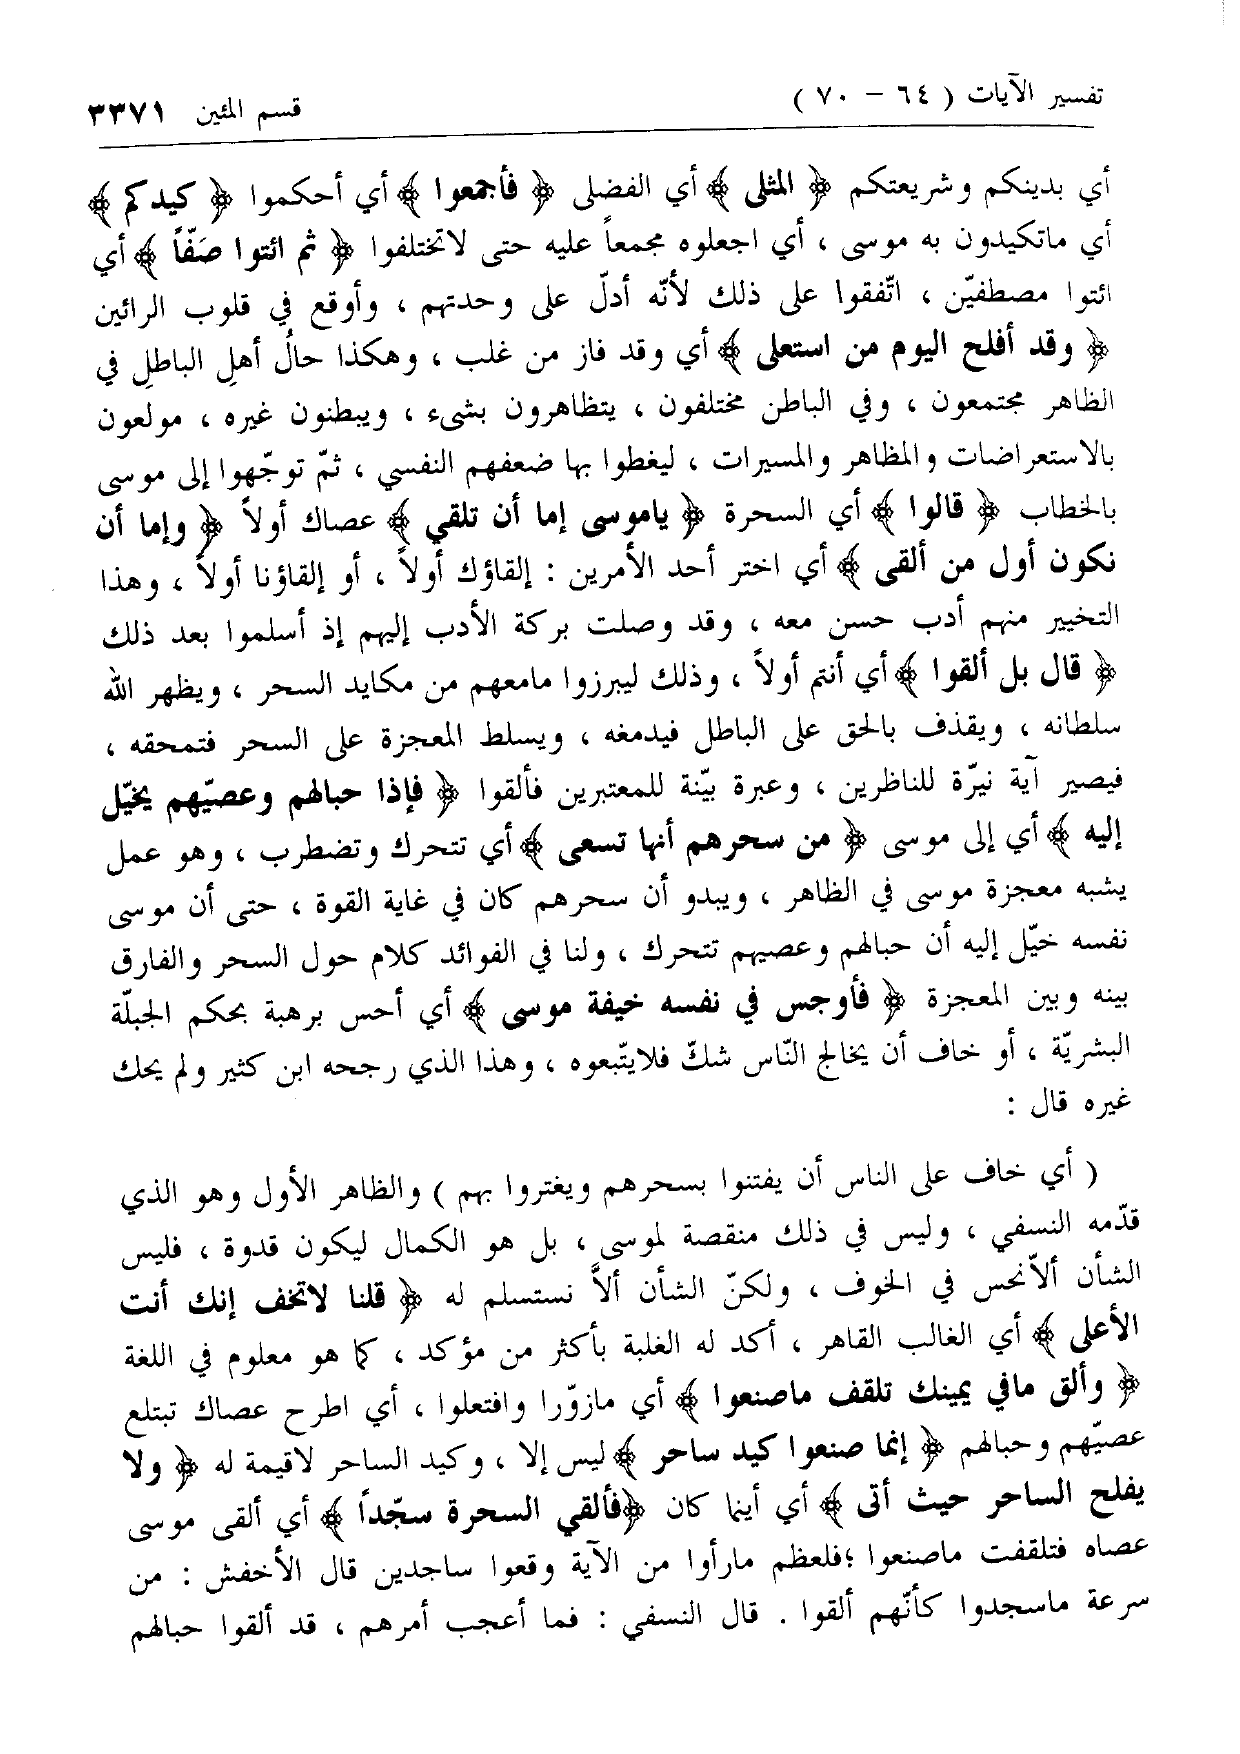 تفسير الآيات ( ٦٤ - ٧٠ )
قسم المئين ٣٣٧١
أي بدينكم وشريعتكم ﴿ المثلى ﴾ أي الفضلى ﴿ فأجمعوا ﴾ أي أحكموا ﴿ كيدكم ﴾
أي ماتكيدون به موسى ، أي اجعلوه مجمعاً عليه حتى لاتختلفوا ﴿ ثم ائتوا صَفّاً ﴾ أي
ائتوا مصطفيّن ، اتّفقوا على ذلك لأنّه أدلّ على وحدتهم ، وأوقع في قلوب الرائين
﴿ وقد أفلح اليوم من استعلى ﴾ أي وقد فاز من غلب ، وهكذا حالُ أهلِ الباطلِ في
الظاهر مجتمعون ، وفي الباطن مختلفون ، يتظاهرون بشىء ، ويبطنون غيره ، مولعون
بالاستعراضات والمظاهر والمسيرات ، ليغطوا بها ضعفهم النفسي ، ثمّ توجّهوا إلى موسى
بالخطاب ﴿ قالوا ﴾ أي السحرة ﴿ ياموسى إما أن تلقي ﴾ عصاك أولاً ﴿ وإما أن
نكون أول من ألقى ﴾ أي اختر أحد الأمرين : إلقاؤك أولاً ، أو إلقاؤنا أولاً ، وهذا
التخيير منهم أدب حسن معه ، وقد وصلت بركة الأدب إليهم إذ أسلموا بعد ذلك
﴿ قال بل ألقوا ﴾ أي أنتم أولاً ، وذلك ليبرزوا مامعهم من مكايد السحر ، ويظهر الله
سلطانه ، ويقذف بالحق على الباطل فيدمغه ، ويسلط المعجزة على السحر فتمحقه ،
فيصير آية نيرّة للناظرين ، وعبرة بيّنة للمعتبرين فألقوا ﴿ فإذا حبالهم وعصيّهم يخيّل
إليه ﴾ أي إلى موسى ﴿ من سحرهم أنها تسعى ﴾ أي تتحرك وتضطرب ، وهو عمل
يشبه معجزة موسى في الظاهر ، ويبدو أن سحرهم كان في غاية القوة ، حتى أن موسى
نفسه خيّل إليه أن حبالهم وعصيهم تتحرك ، ولنا في الفوائد كلام حول السحر والفارق
بينه وبين المعجزة ﴿ فأوجس في نفسه خيفة موسى ﴾ أي أحس برهبة بحكم الجبلّة
البشريّة ، أو خاف أن يخالج النّاس شكّ فلايتّبعوه ، وهذا الذي رجحه ابن كثير ولم يحك
غيره قال :
( أي خاف على الناس أن يفتنوا بسحرهم ويغتروا بهم ) والظاهر الأول وهو الذي
قدّمه النسفي ، وليس في ذلك منقصة لموسى ، بل هو الكمال ليكون قدوة ، فليس
الشأن ألاّنحس في الخوف ، ولكنّ الشأن ألاَّ نستسلم له ﴿ قلنا لاتخف إنك أنت
الأعلى ﴾ أي الغالب القاهر ، أكد له الغلبة بأكثر من مؤكد ، كما هو معلوم في اللغة
﴿ وألق مافي يمينك تلقف ماصنعوا ﴾ أي مازوّرا وافتعلوا ، أي اطرح عصاك تبتلع
عصيّهم وحبالهم ﴿ إنما صنعوا كيد ساحر ﴾ ليس إلا ، وكيد الساحر لاقيمة له ﴿ ولا
يفلح الساحر حيث أتى ﴾ أي أينما كان ﴿فألقي السحرة سجّداً ﴾ أي ألقى موسى
عصاه فتلقفت ماصنعوا ؛فلعظم مارأوا من الآية وقعوا ساجدين قال الأخفش : من
سرعة ماسجدوا كأنّهم ألقوا . قال النسفي : فما أعجب أمرهم ، قد ألقوا حبالهم